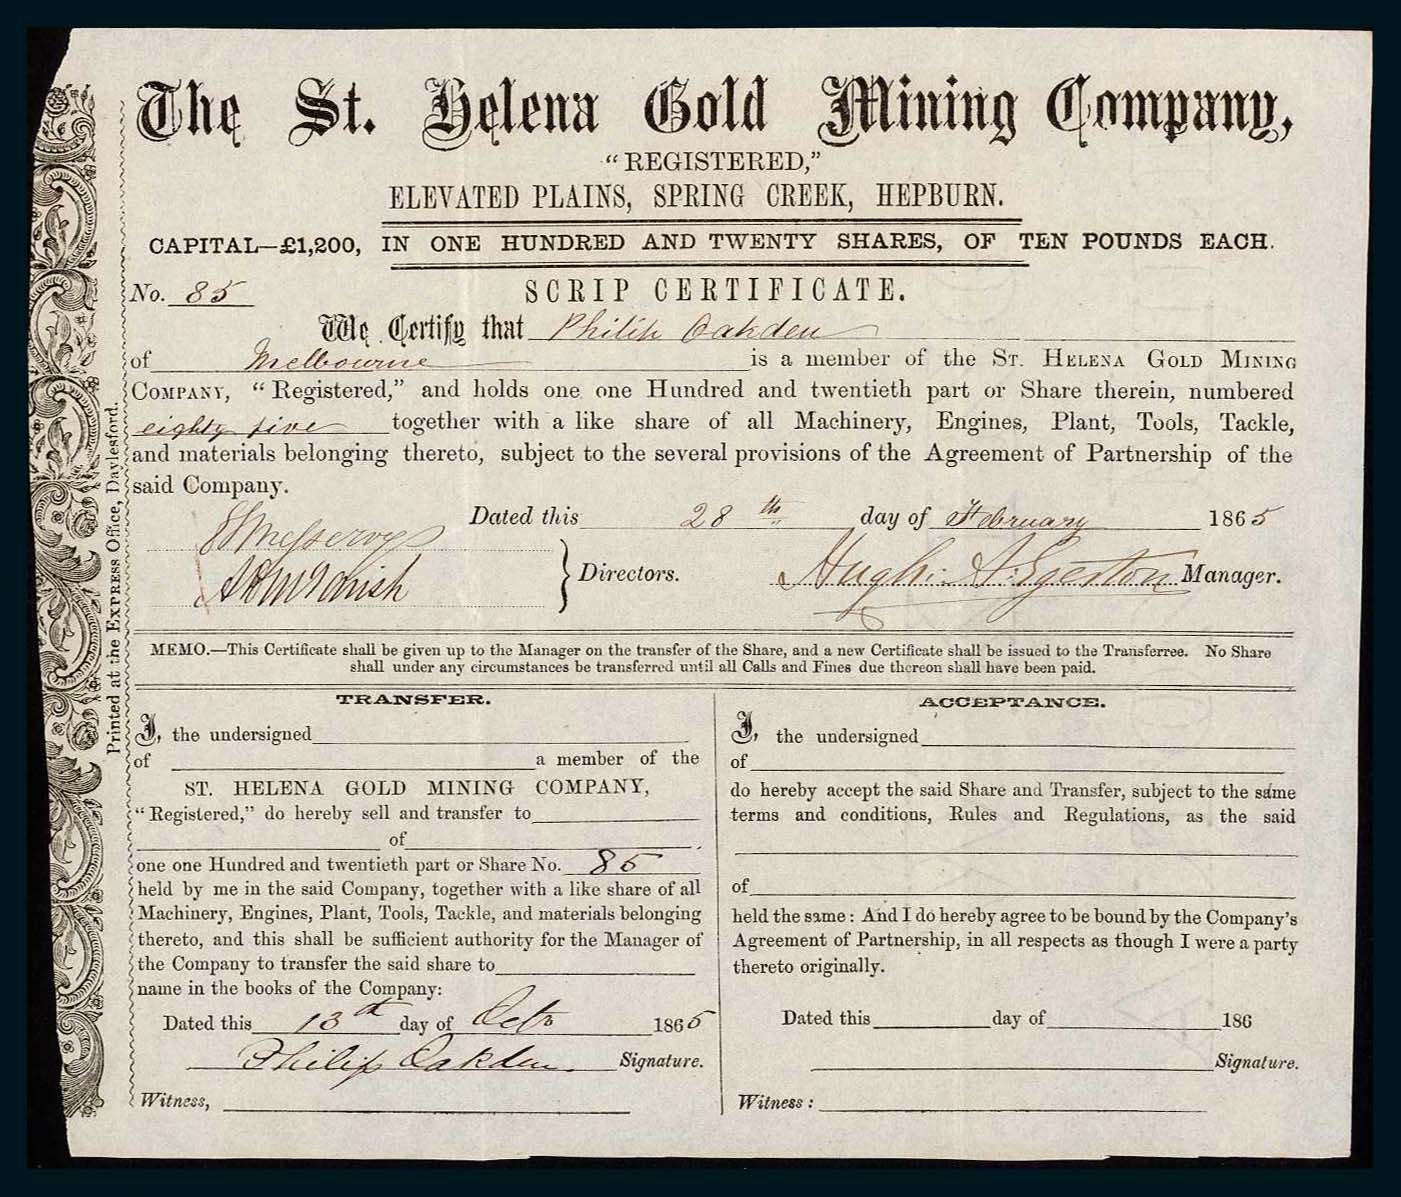 The St. Helena Gold Mining Company,
"REGISTERED,"
ELEVATED PLAINS, SPRING CREEK, HEPBURN.
CAPITAL—£1,200, IN ONE HUNDRED AND TWENTY SHARES, OF TEN POUNDS EACH.
No. 85
SCRIP CERTIFICATE.
We Certify that Philip Oakden
of Melbourne is a member of the ST. HELENA GOLD MINING
COMPANY, "Registered," and holds one one Hundred and twentieth part or Share therein, numbered
eighty five together with a like share of all Machinery, Engines, Plant, Tools, Tackle,
and materials belonging thereto, subject to the several provisions of the Agreement of Partnership of the
said Company.
Dated this 28th day of February 1865
Directors.
Hugh. Egerton Manager.
MEMO.—This Certificate shall be given up to the Manager on the transfer of the Share, and a new Certificate shall be issued to the Transferree. No Share
shall under any circumstances be transferred until all Calls and Fines due thereon shall have been paid.
TRANSFER.
I, the undersigned
of a member of the
ST. HELENA GOLD MINING COMPANY,
"Registered," do hereby sell and transfer to
of
one one Hundred and twentieth part or Share No. 85
held by me in the said Company, together with a like share of all
Machinery, Engines, Plant, Tools, Tackle, and materials belonging
thereto, and this shall be sufficient authority for the Manager of
the Company to transfer the said share to
name in the books of the Company:
Dated this 13th day of Octr 1865
Philip Oakden. Signature.
Witness,
ACCEPTANCE.
I, the undersigned
of
do hereby accept the said Share and Transfer, subject to the same
terms and conditions, Rules and Regulations, as the said
of
held the same: And I do hereby agree to be bound by the Company's
Agreement of Partnership, in all respects as though I were a party
thereto originally.
Dated this day of 186
Signature.
Witness:
Printed at the EXPRESS Office, Daylesford.